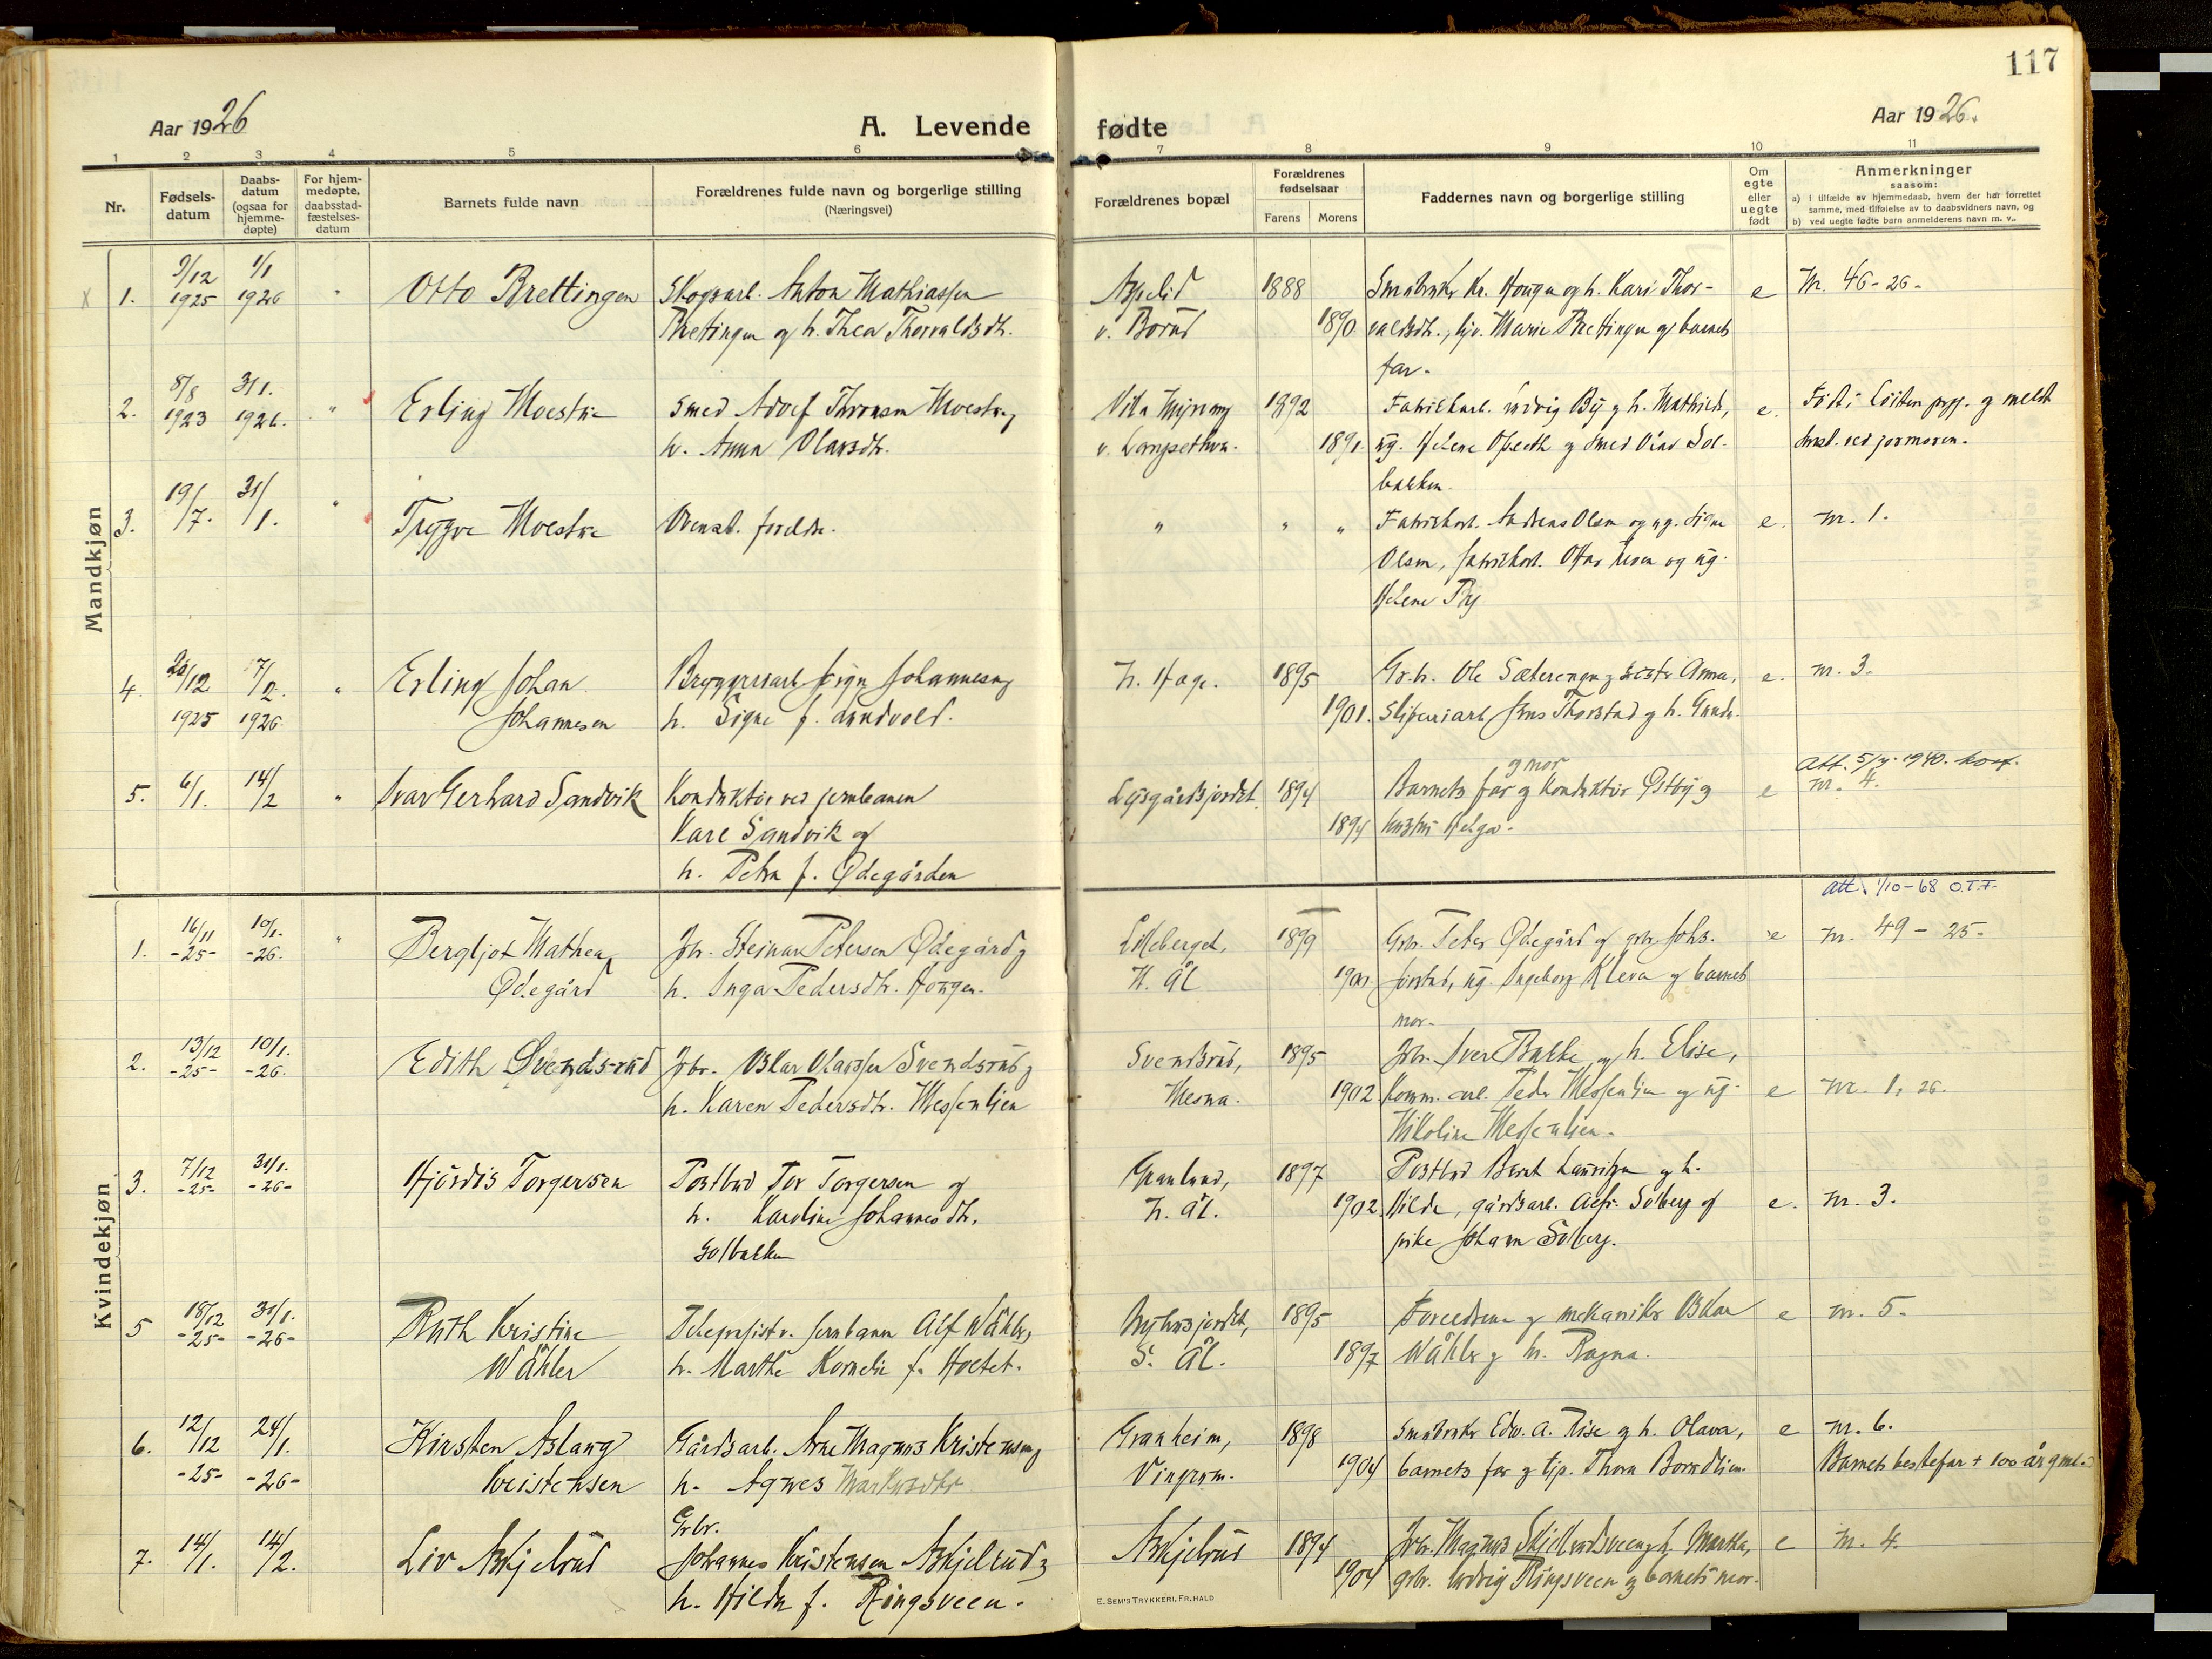 117
Aar 1926
A. Levende
fødte
Aar 1926.
1 2 3 4 5 6 7 8 9 10 11
Nr.
Fødsels-
datum
Daabs-
datum
(ogsaa for
hjemme-
døpte)
For hjem-
medøpte,
daabsstad-
fæstelses-
datum
Barnets fulde navn
Forældrenes fulde navn og borgerlige stilling
(Næringsvei)
Forældrenes bopæl
Forældrenes
fødselsaar
Farens Morens
Faddernes navn og borgerlige stilling
Om
egte
eller
uegte
født
Anmerkninger
saasom:
a) I tilfælde av hjemmedaab, hvem der har forrettet
samme, med tilføielse av to daabsvidners navn, og
b) ved uegte fødte barn anmelderens navn m. v..
Mandkjøn
X 1. 9/12 1/1 " Otto Brettingen Skogsarb. Anton Mathiassen 1888 e Nr. 46-26-
1925 1926
Brettingen og h. Thea Thorvaldsdtr. v. Borud 1890 valdsdtr., Marie Brettingen og barnets
far.
2. 8/8 31/1. " Erling Moestue Smed Adolf Thronsen Moestue, 1892 Fabrikkarb. Ludvig By og h. Mathilde, e. Født i Løiten og meldt
1923 1926. h. Anna Olavsdtr. 1891. ug. Helene og smed Olav Sol-
bakken.
3. 19/7. 31/1. " Trygve Moestue Ovenst. foreldre. " " " Fabrikkarb. Andreas Olsen og ug. Signe e. nr. 1.
Olsen, fabrikkarb. og ug.
Helene By
4. 17/2. " Erling Johan Johannesen, N. Hage. 1895 Gr. h. Ole Sæterengen og Anna, e. nr. 3.
1925 1926. Johannesen h. Signe f. Lundvold. 1901. Sliperiarb. Jens Thorstad og h.
Att. 5/4. 1940. konf.
og mor
5. 6/1. 14/2 " Ivar Gerhard Sandvik Konduktør ved jernbanen Lysgårdsjordet. 1894 Barnets far og Konduktør Østby og e nr. 4.
Karl Sandvik og 1894 hustru Helga.
h. Petra f. Ødegården
Kvindekjøn
att. 1/10-68 O.T.F.
1. 16/11 10/1. " Bergljot Mathea Steinar Petersen Ødegård og Lilleberget, 1899 Grbr. Peter Ødegård og grbr. Johs. e nr. 49-25-
-25- -26. Ødegård h. Inga Pedersdtr. Haugen. N. Ål ug. Ingeborg Kleva og barnets
mor.
2. 13/12 10/1. Edith Svendsrud Oskar Olavssen Svendsrud og Svendsrud, 1895 Iver Bakke og h. Elise,
-25- -26. h. Karen Pedersdtr. Messenlien Mesna. 1902 Komm. arb. Peder Messenlien og ug. e nr. 1, 26.
Nikoline Messenlien.
3. 7/12 31/1. Hjørdis Torgersen Postbud Tor Torgersen og Granlund, 1897 Postbud Bernt Lauritzen og h.
-25- -26- h. Karoline Johannesdtr. N. Ål. 1902 Hilda, gårdsarb. Alfr. Solberg og e. nr. 3.
Solbakken pike Johanne Solberg.
5 18/12 31/1. Ruth Kristine Telegrafist v. jernbanen Alf Wåhler, 1895 Foreldrene og mekaniker Oskar e nr. 5.
-25- -26- Wåhler h. Marthe Kornelie f. Holtet. S. Ål. 1897 Wåhler og h. Ragna.
6. 12/12 24/1. Kirsten Aslaug Gårdsarb. Arne Magnus Kristensen og Granheim, 1898 Småbruker Edv. A. Rise og h. Olava, e nr. 6.
-25- -26- Kristensen h. Agnes Markusdtr Vingrom. 1904 barnets far og tjp. Thora Borudlien. Barnets bestefar + 100 år gml.
Grbr.
7. 14/1. 14/2. Liv Askjelrud Johannes Kristensen Askjelrud og Askjelrud 1894 Magnus og h. Martha, e nr. 4.
h. Hilda f. Ringsveen. 1904 grbr. Ludvig Ringsveen og barnets mor.
E. SEM'S TRYKKERI, FR.HALD